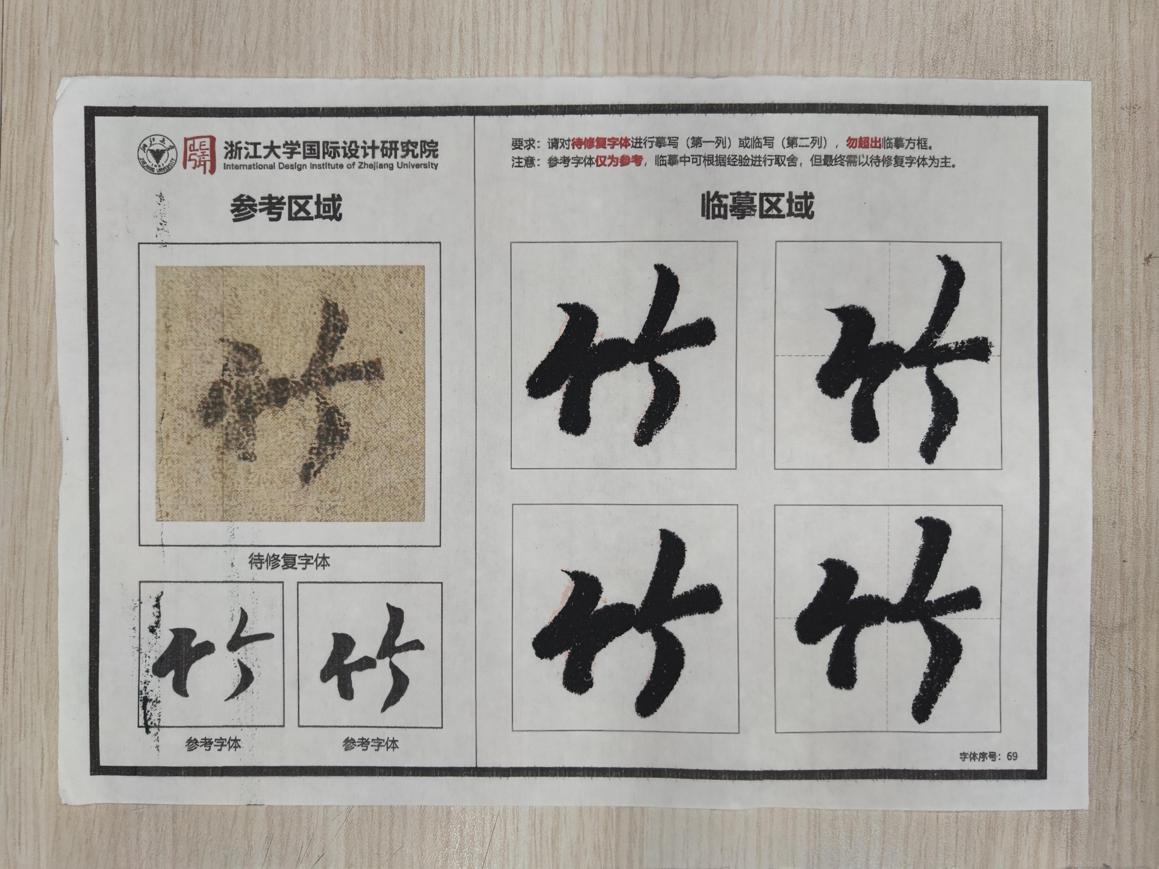 浙江大学国际设计研究院
International Design Institute of Zhejiang University
参考区域
竹
待修复字体
竹
竹
参考字体
参考字体
要求：请对待修复字体进行摹写（第一列）或临写（第二列），勿超出临摹方框。
注意：参考字体仅为参考，临摹中可根据经验进行取舍，但最终需以待修复字体为主。
临摹区域
竹
竹
竹
竹
字体序号：69